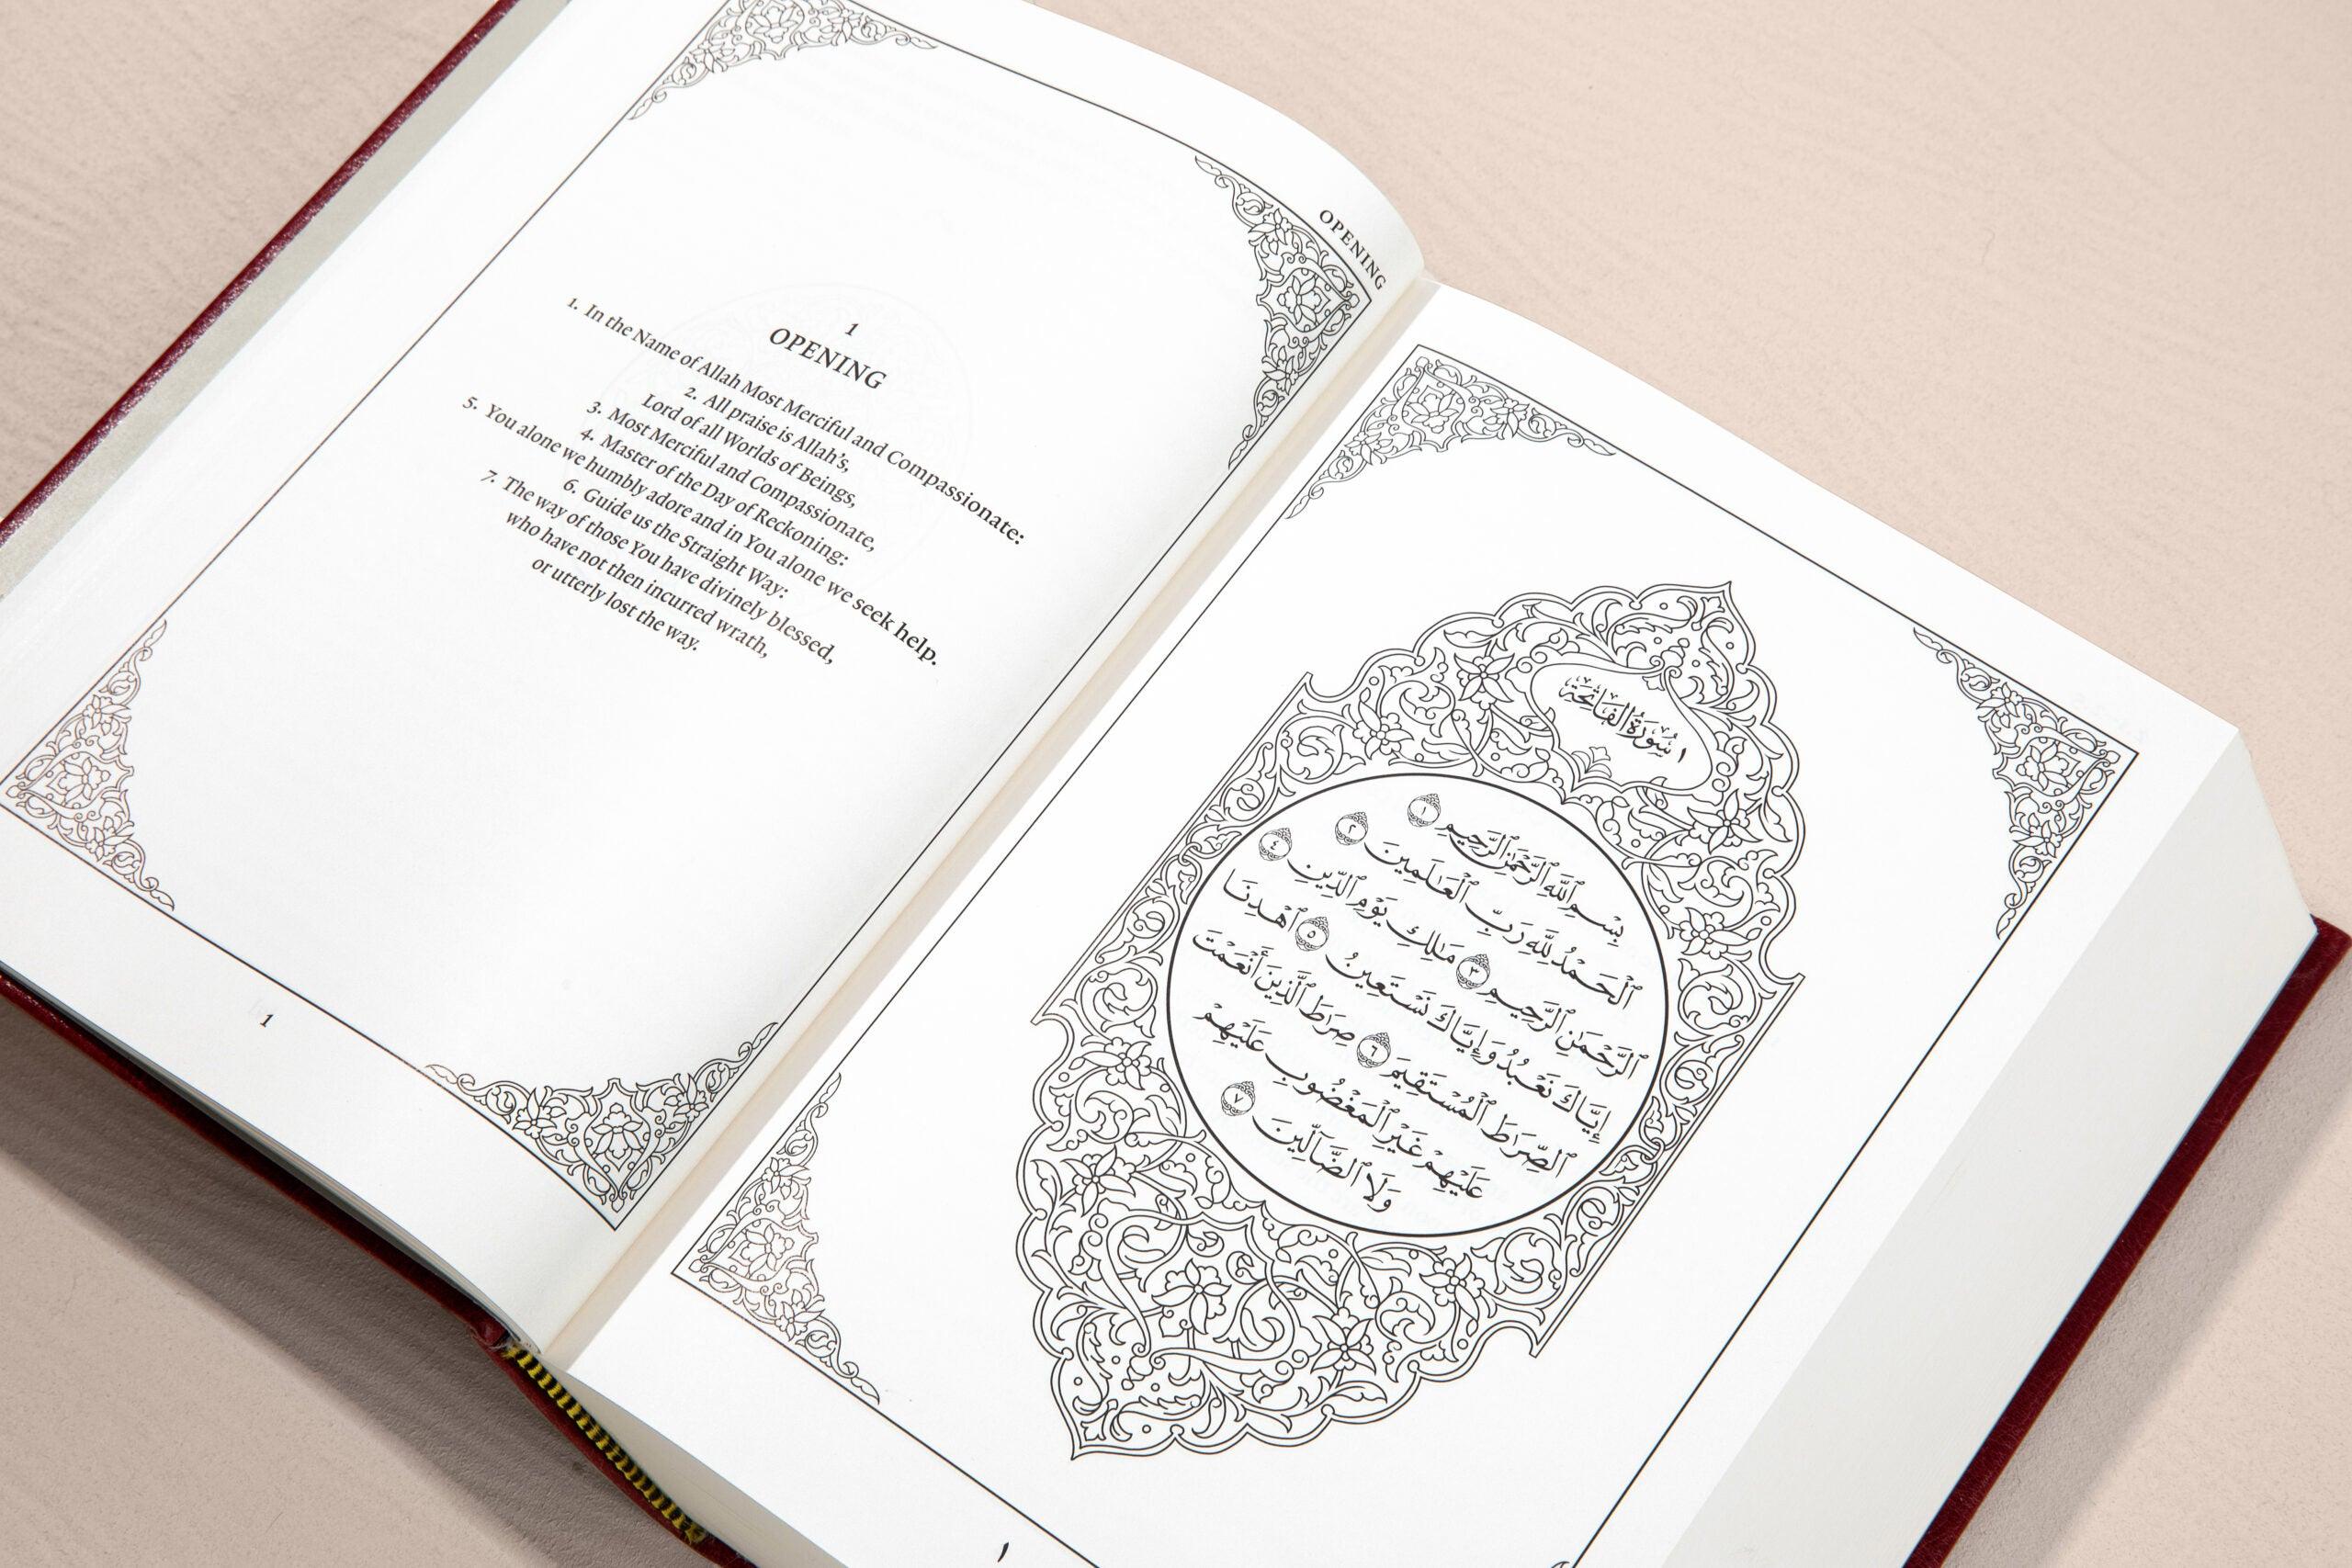 OPENING
1
OPENING
1. In the Name of Allah Most Merciful and Compassionate:
2. All praise is Allah's,
Lord of all Worlds of Beings,
3. Most Merciful and Compassionate,
4. Master of the Day of Reckoning:
5. You alone we humbly adore and in You alone we seek help.
6. Guide us the Straight Way:
7. The way of those You have divinely blessed,
who have not then incurred wrath,
or utterly lost the way.
1
١ سُورَةُ الفَاتِحَة
بِسْمِ ٱللَّهِ ٱلرَّحْمَٰنِ ٱلرَّحِيمِ ١
ٱلْحَمْدُ لِلَّهِ رَبِّ ٱلْعَٰلَمِينَ ٢
ٱلرَّحْمَٰنِ ٱلرَّحِيمِ ٣ مَٰلِكِ يَوْمِ ٱلدِّينِ ٤
إِيَّاكَ نَعْبُدُ وَإِيَّاكَ نَسْتَعِينُ ٥ ٱهْدِنَا
ٱلصِّرَٰطَ ٱلْمُسْتَقِيمَ ٦ صِرَٰطَ ٱلَّذِينَ أَنْعَمْتَ
عَلَيْهِمْ غَيْرِ ٱلْمَغْضُوبِ عَلَيْهِمْ
وَلَا ٱلضَّآلِّينَ ٧
١